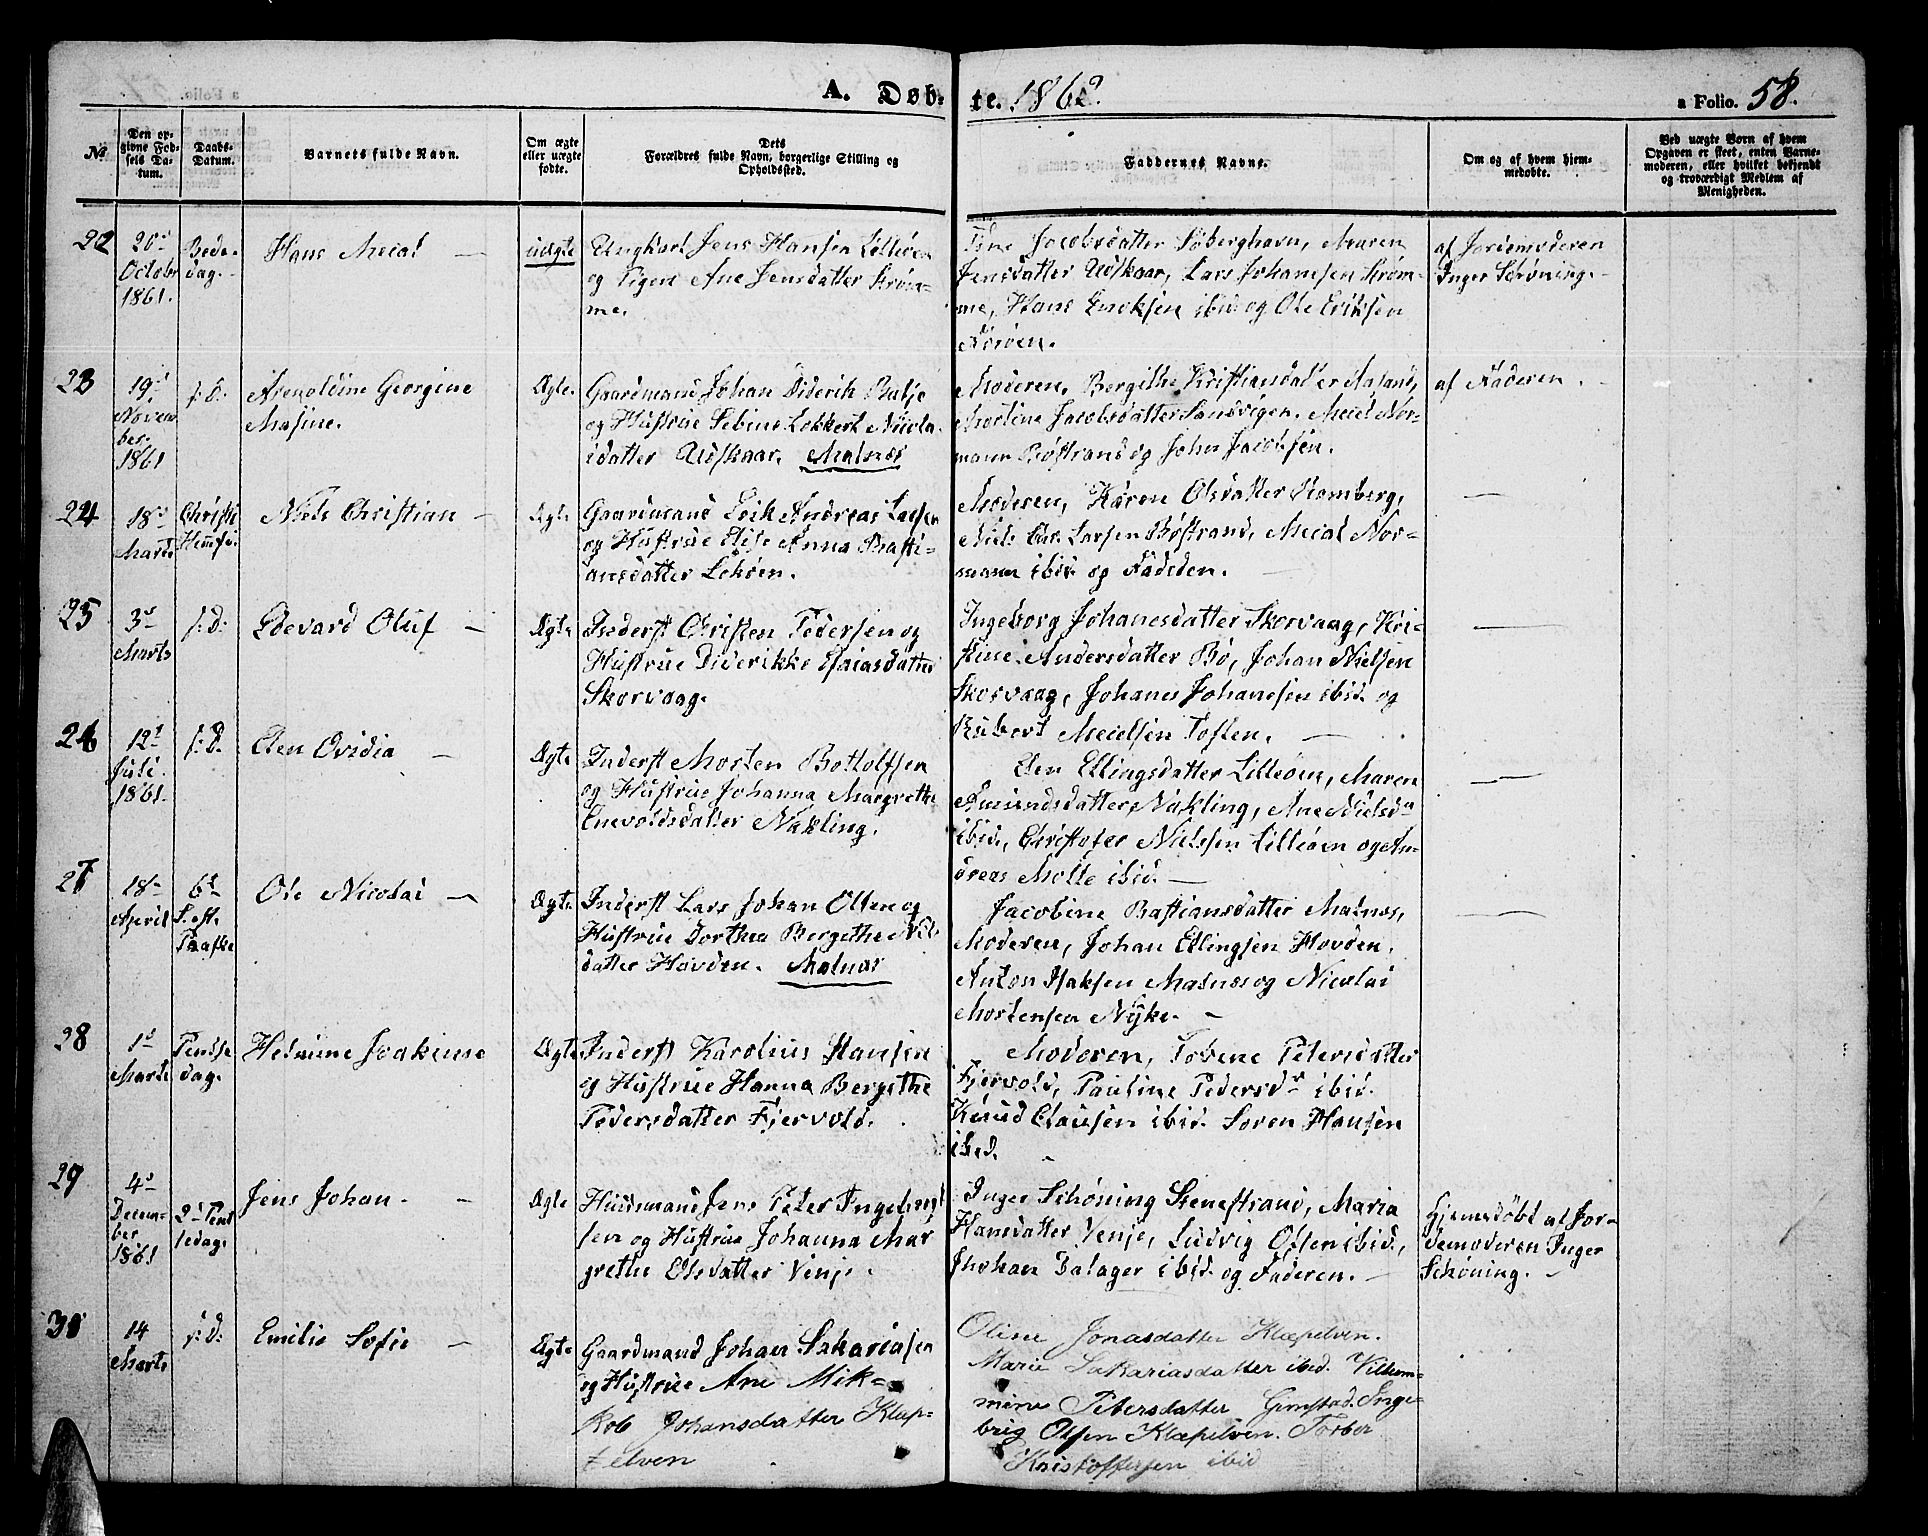 A. Døb- te. 1862. a Folio. 58.
No
Den op-
givne Fød-
sels Da-
tum.
Daabs-
Datum.
Barnets fulde Navn.
Om ægte
eller uægte
fødte.
Dets
Forældres fulde Navn, borgerlige Stilling og
Opholdssted.
Faddernes Navne.
Om og af hvem hjem-
medøbte.
Ved uægte Børn af hvem
Opgaven er skeet, enten Barne-
moderen, eller hvilket bekjendt
og troværdigt Medlem af
Menigheden.
22
20de
Octobr
1861.
Bede-
dag.
Hans Meial —
uægte
Ungkarl Jens Hansen Lilleøen
og Pigen Ane Jensdatter Strøm-
me.
Tine Jacobsdatter Søberghavn, Maren
Jensdatter Udskaar, Lars Johansen Strøm-
me, Hans Enoksen ibid. og Ole Eriksen
af Jordemoderen
Inger Schøning.
23
19de
Novem-
ber.
1861
s. D.
Arnoldine Georgine
Masine.
Ægte.
Gaardmand Johan Diderik Butje
og Hustrue Sebine Lokkert Nicola-
idatter Udskaar. Malnæs
Moderen, Bergithe Kristiansdatter Aasand,
Mortine Jacobsdatter Sandvigen. Meiel Nor-
mann Bøstrand og John Jacobsen.
af Faderen.
24
18de
Marts
Christi
Himmf.
Niels Christian —
Ægte
Gaardmand Erik Andreas Larsen
og Hustrue Elise Anna Basti-
ansdatter Loksøen.
Moderen, Karen Olsdatter Romberg,
Niels Chr. Larsen Bøstrand, Meial Nor-
mann ibid. og Fadeden. —
—
25
3de
Marts
s. D.
Edevard Oluf —
Ægte
Inderst Christen Pedersen og
Hustrue Diderikke Esaiasdatter
Skorvaag.
Ingeborg Johanesdatter Skorvaag, Kri-
stine Andersdatter Bø, Johan Nielsen
Skorvaag, Johanes Johanesen ibid. og
Rubert Meielsen Toften. —
—
26
12te
Juli.
1861.
s. D.
Elen Ovidia —
Ægte
Inderst Morten Bottolfsen
og Hustrue Johanna Margrethe
Enevoldsdatter Nykling.
Elen Ellingsdatter Lilleøen, Maren
Amundsdatter Nykling, Ane Nielsdr
ibid., Christofer Nielssen Lilleøen og An-
dreas Molle ibid. —
—
27
18de
April
6te
S. eft.
Paaske
Ole Nicolai —
Ægte
Inderst Lars Johan Olsen og
Hustrue Dorthea Bergethe Nils-
datter Hovden. Malnæs
Jacobine Bastiansdatter Malnæs,
Moderen, Johan Ellingsen Hovden.
Anton Isaksen Malnæs og Nicolai
Mortensen Nyke. —
—
28
1ste
Marts
Pintse
dag.
Helmine Joakime
Ægte
Inderst Karolius Hansen
og Hustrue Hanna Bergethe
Pedersdatter Fjervold.
Moderen, Tobene Petersdatter
Fjervold, Pauline Pedersdr ibid.
Knud Clausen ibid. Soren Hansen
ibid.
29
4de
Decem-
ber
1861
2d Pint-
sedag.
Jens Johan —
Ægte
Huusmand Jens Peter Ingebrigt-
sen og Hustrue Johanna Mar-
grethe Olsdatter Vinje.
Inger Schøning Steenestrand, Maria
Hansdatter Venje, Ludvig Olsen ibid.,
Jhohan Balager ibid. og Faderen. —
Hjemedöbt af Jor-
demoderen Inger
Schøning. —
30
14
Marts
s. D.
Emilie Sofie —
Ægte
Gaardmand Johan Sakariasen
og Hustrue Ane Mik-
kob Johansdatter Klæp-
telven
Oline Jonasdatter Klæpelven.
Marie Sakariasdatter ibid. Vilhem-
mine Petersdatter Grimstad. Inge-
brig Olsen Klæpelven. Torber
Kristoffersen ibid